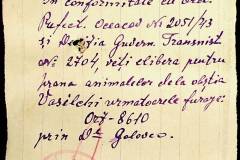 In conformitate cu Ord.
Prefect. Oceacov № 2051/43
și Decizia Guvern. Transnist.
№: 2704, veți elibera pentru
hrana animalelor dela obștia
Vasilchi urmatoarele furaje:
Orz - 8610
prin Dl Golovco.